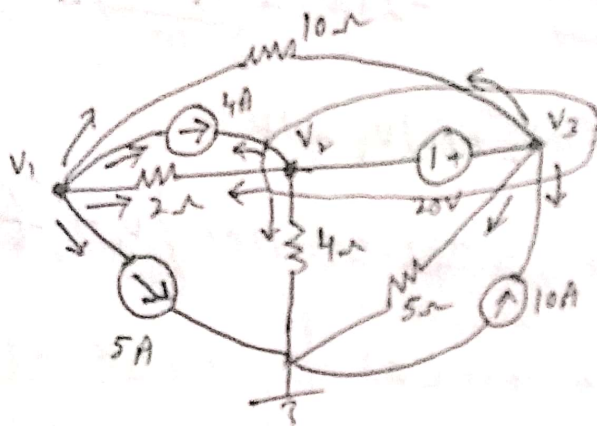 10Ω
4A
V₁
V₂
V₃
- +
2Ω
20V
4Ω
5Ω
10A
5A